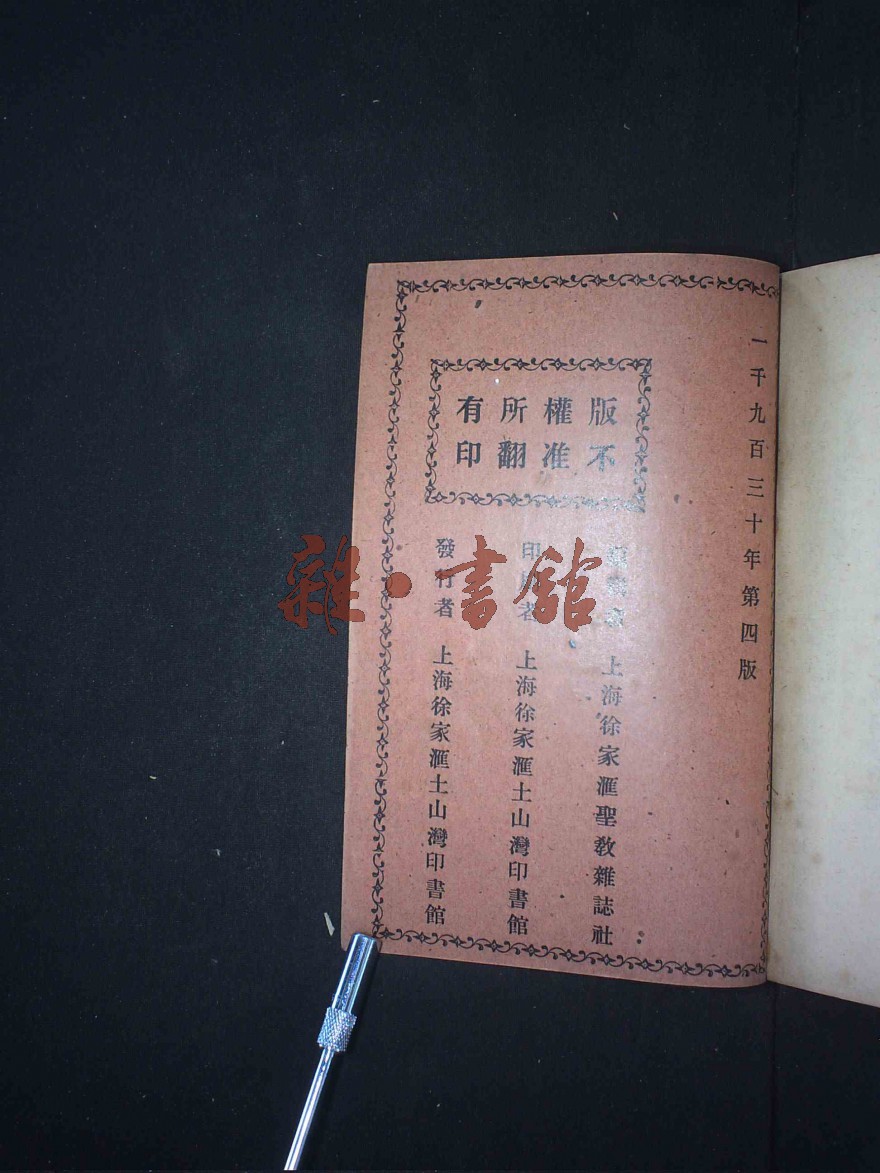 一千九百三十年第四版
版權所有
不准翻印
上海徐家滙聖教雜誌社
印刷者 上海徐家滙土山灣印書館
發行者 上海徐家滙土山灣印書館
雜·書館